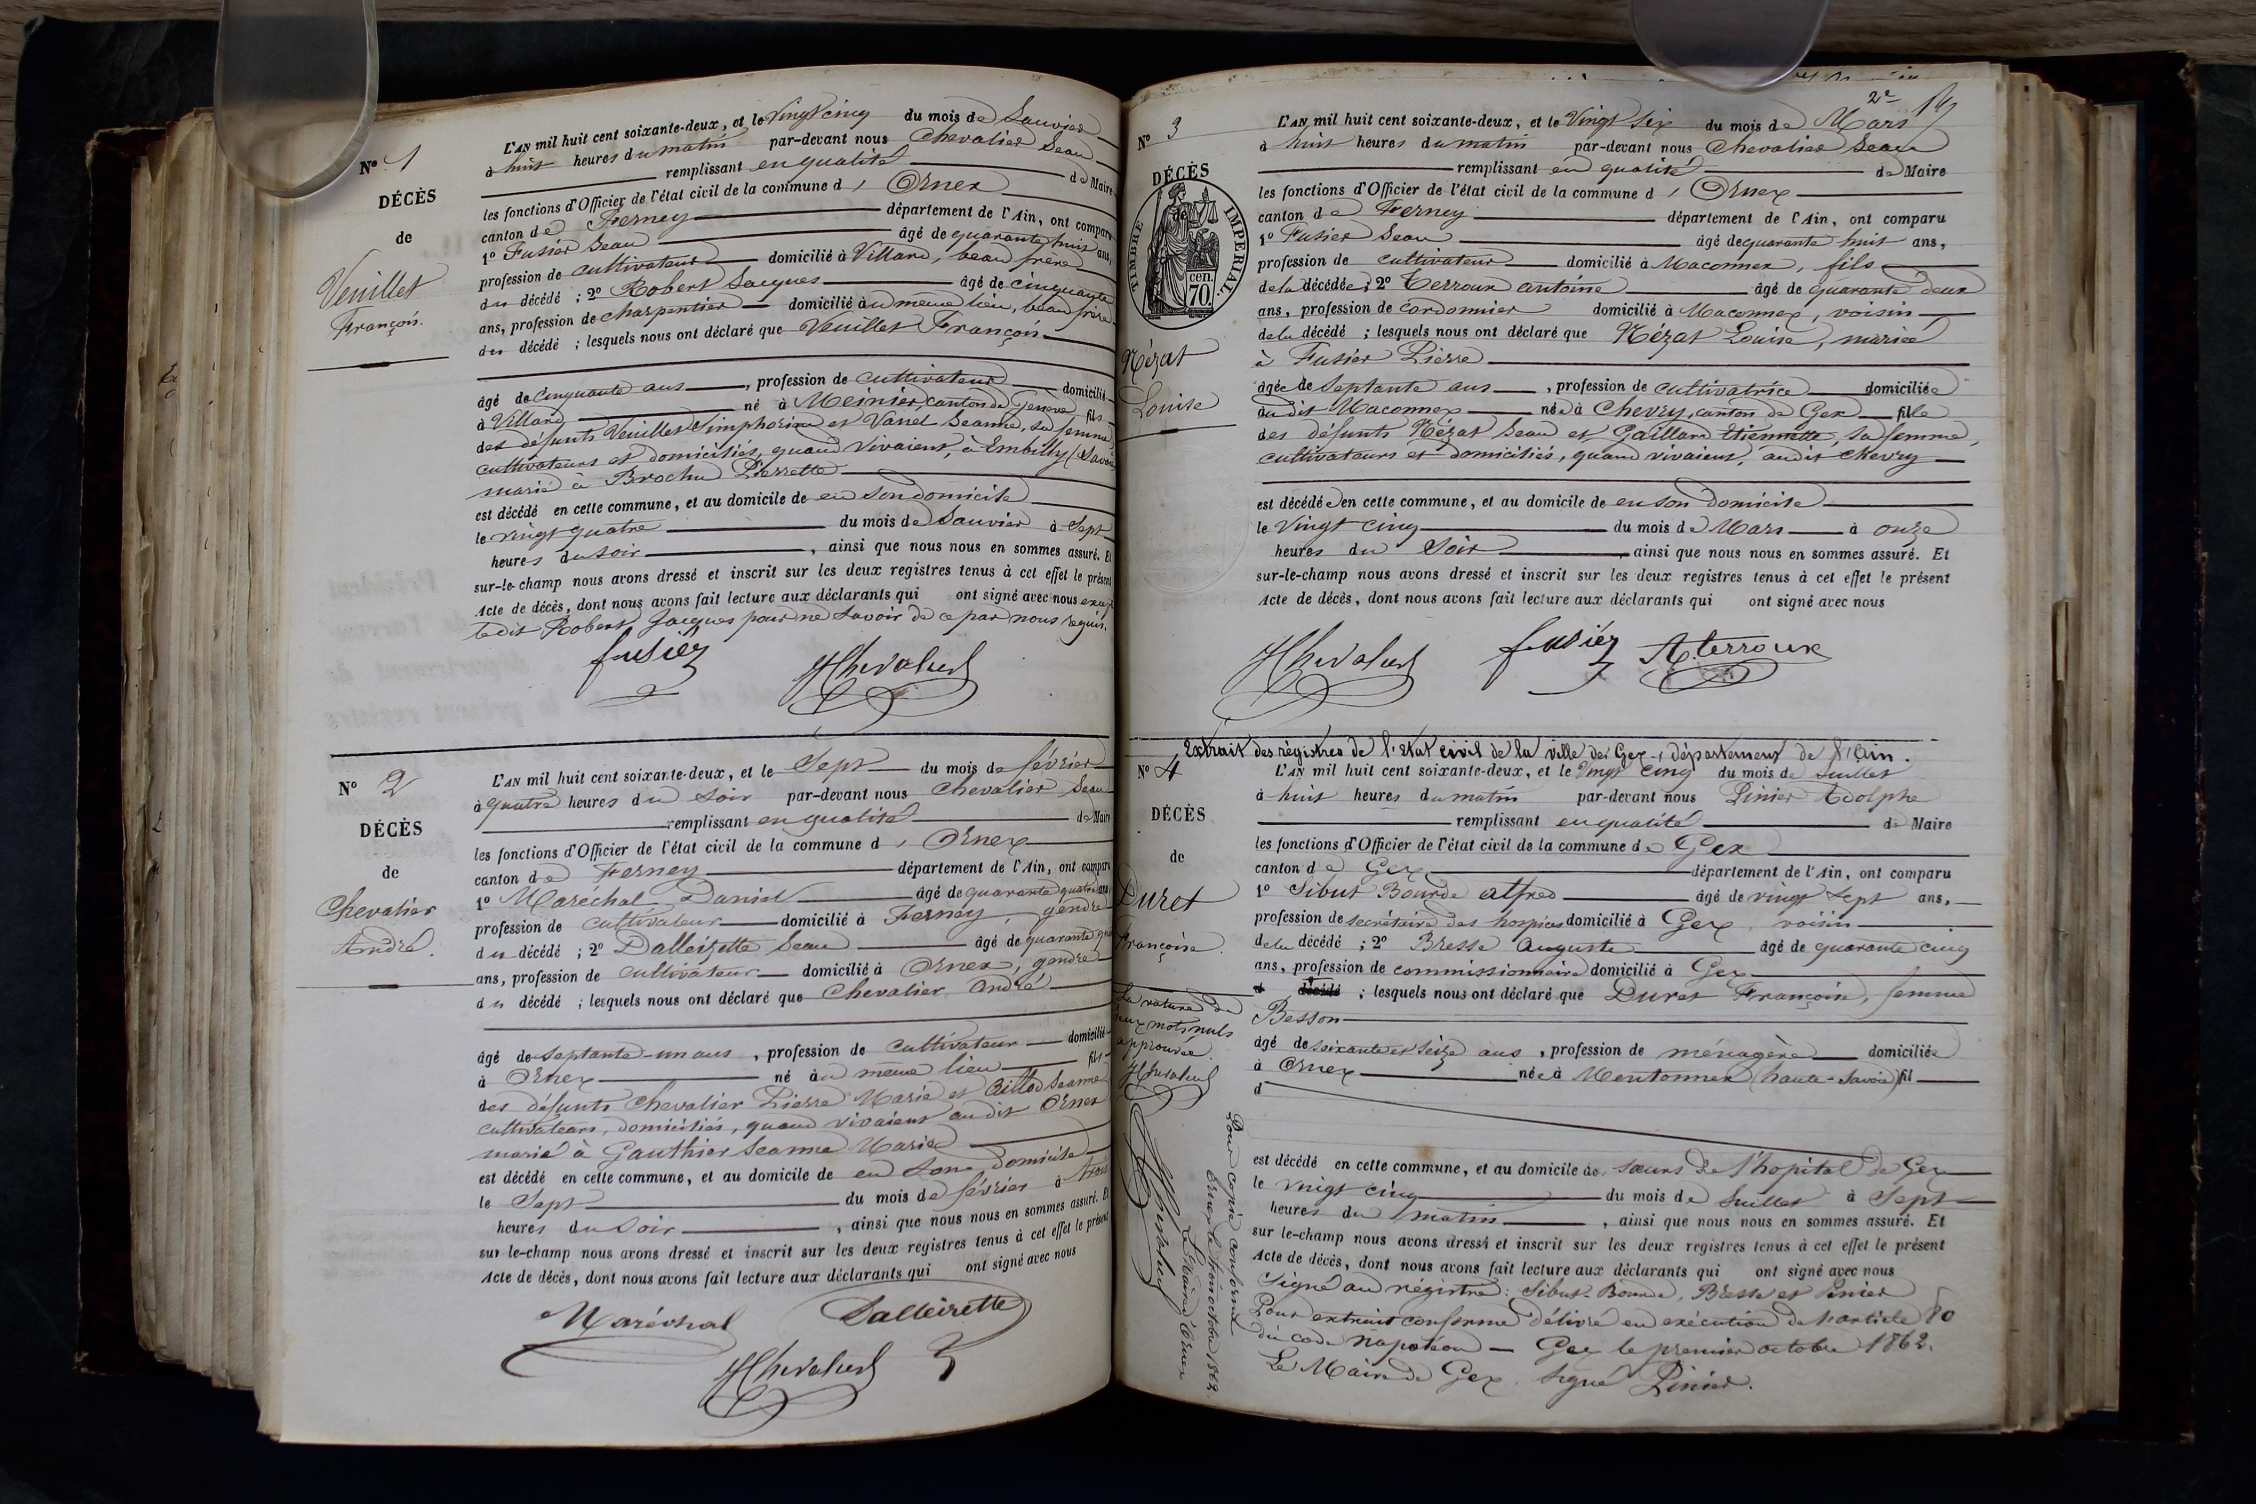 N° 1
DÉCÈS
de
Veuillet
François.
L'AN mil huit cent soixante-deux, et le Vingt cinq du mois de Janvier
à huit heures du matin par-devant nous Chevalier Jean
remplissant en qualité de Maire
les fonctions d'Officier de l'état civil de la commune d' Ornex
canton de Ferney département de l'Ain, ont comparu
1° Fusier Jean âgé de quarante huit ans,
profession de cultivateur domicilié à Villard, beau frère
du décédé ; 2° Robert Jacques âgé de cinquante
ans, profession de charpentier domicilié au même lieu, beau frère
du décédé ; lesquels nous ont déclaré que Veuillet François
âgé de cinquante ans, profession de cultivateur domicilié
à Villard né à Meinier, canton de Genève fils
des défunts Veuillet Simphorien et Vanel Jeanne, sa femme,
cultivateurs et domiciliés, quand vivaient, à Embilly (Savoie
marié à Brochu Pierrette
est décédé en cette commune, et au domicile de en son domicile
le vingt quatre du mois de Janvier à Sept
heures du soir, ainsi que nous nous en sommes assuré. Et
sur-le-champ nous avons dressé et inscrit sur les deux registres tenus à cet effet le présent
Acte de décès, dont nous avons fait lecture aux déclarants qui ont signé avec nous excepté
ledit Robert Jacques pour ne savoir de ce par nous requis.
fusier
JChevalier
N° 2
DÉCÈS
de
Chevalier
André.
L'AN mil huit cent soixante-deux, et le Sept du mois de février
à quatre heures du soir par-devant nous Chevalier Jean
remplissant en qualité de Maire
les fonctions d'Officier de l'état civil de la commune d' Ornex
canton de Ferney département de l'Ain, ont comparu
1° Maréchal Daniel âgé de quarante quatre ans
profession de cultivateur domicilié à Ferney, gendre
du décédé ; 2° Dalleizette Jean âgé de quarante
ans, profession de cultivateur domicilié à Ornex, gendre
du décédé ; lesquels nous ont déclaré que Chevalier André
âgé de septante-un ans, profession de cultivateur domicilié
à Ornex né au même lieu fils
des défunts Chevalier Pierre Marie et Billod Jeanne
cultivateurs, domiciliés, quand vivaient audit Ornex
marié à Gauthier Jeanne Marie
est décédé en cette commune, et au domicile de en son domicile
le Sept du mois de février à trois
heures du soir, ainsi que nous nous en sommes assuré. Et
sur le-champ nous avons dressé et inscrit sur les deux registres tenus à cet effet le présent
Acte de décès, dont nous avons fait lecture aux déclarants qui ont signé avec nous
Maréchal
Dalleizette
JChevalier
2e
N° 3
DÉCÈS
de
TIMBRE IMPERIAL
70 cen.
Nézat
Louise
L'AN mil huit cent soixante-deux, et le Vingt six du mois de Mars
à huit heures du matin par-devant nous Chevalier Jean
remplissant en qualité de Maire
les fonctions d'Officier de l'état civil de la commune d' Ornex
canton de Ferney département de l'Ain, ont comparu
1° Fusier Jean âgé de quarante huit ans,
profession de cultivateur domicilié à Maconnex, fils
de la décédée ; 2° Terroux antoine âgé de quarante deux
ans, profession de cordonnier domicilié à Maconnex, voisin
de la décédé ; lesquels nous ont déclaré que Nézat Louise, mariée
à Fusier Pierre
âgée de septante ans, profession de cultivatrice domiciliée
audit Maconnex née à Chevry, canton de Gex fille
des défunts Nézat Jean et Gaillard Etiennette, sa femme,
cultivateurs et domiciliés, quand vivaient, audit Chevry
est décédée en cette commune, et au domicile de en son domicile
le Vingt cinq du mois de Mars à onze
heures du Soir, ainsi que nous nous en sommes assuré. Et
sur-le-champ nous avons dressé et inscrit sur les deux registres tenus à cet effet le présent
Acte de décès, dont nous avons fait lecture aux déclarants qui ont signé avec nous
JChevalier
fusier
A terroux
Extrait des régistres de l'Etat civil de la ville de Gex, département de l'Ain.
N° 4
DÉCÈS
de
Duret
Françoise.
La rature de
deux mots nuls
approuvée.
JChevalier
Pour copie conforme
Ornex le trois octobre 1862.
Le Maire d'Ornex
JChevalier
L'AN mil huit cent soixante-deux, et le Vingt cinq du mois de Juillet
à huit heures du matin par-devant nous Pinier Adolphe
remplissant en qualité de Maire
les fonctions d'Officier de l'état civil de la commune de Gex
canton de Gex département de l'Ain, ont comparu
1° Sibut Bourde alfred âgé de vingt sept ans,
profession de secrétaire des hospices domicilié à Gex, voisin
de la décédé ; 2° Bresse Auguste âgé de quarante cinq
ans, profession de commissionnaire domicilié à Gex
d décédé ; lesquels nous ont déclaré que Duret Françoise, femme
Besson
âgé de soixante et seize ans, profession de ménagère domiciliée
à Ornex née à Mentonnex (haute-Savoie) fil
d
est décédé en cette commune, et au domicile des sœurs de l'hopital de Gex
le vingt cinq du mois de Juillet à Sept
heures du matin, ainsi que nous nous en sommes assuré. Et
sur le-champ nous avons dressé et inscrit sur les deux registres tenus à cet effet le présent
Acte de décès, dont nous avons fait lecture aux déclarants qui ont signé avec nous
Signé au régistre : Sibut-Bourde, Bresse et Pinier
Pour extrait conforme délivré en exécution de l'article 80
du code Napoléon — Gex le premier octobre 1862.
Le Maire de Gex. Signé Pinier.